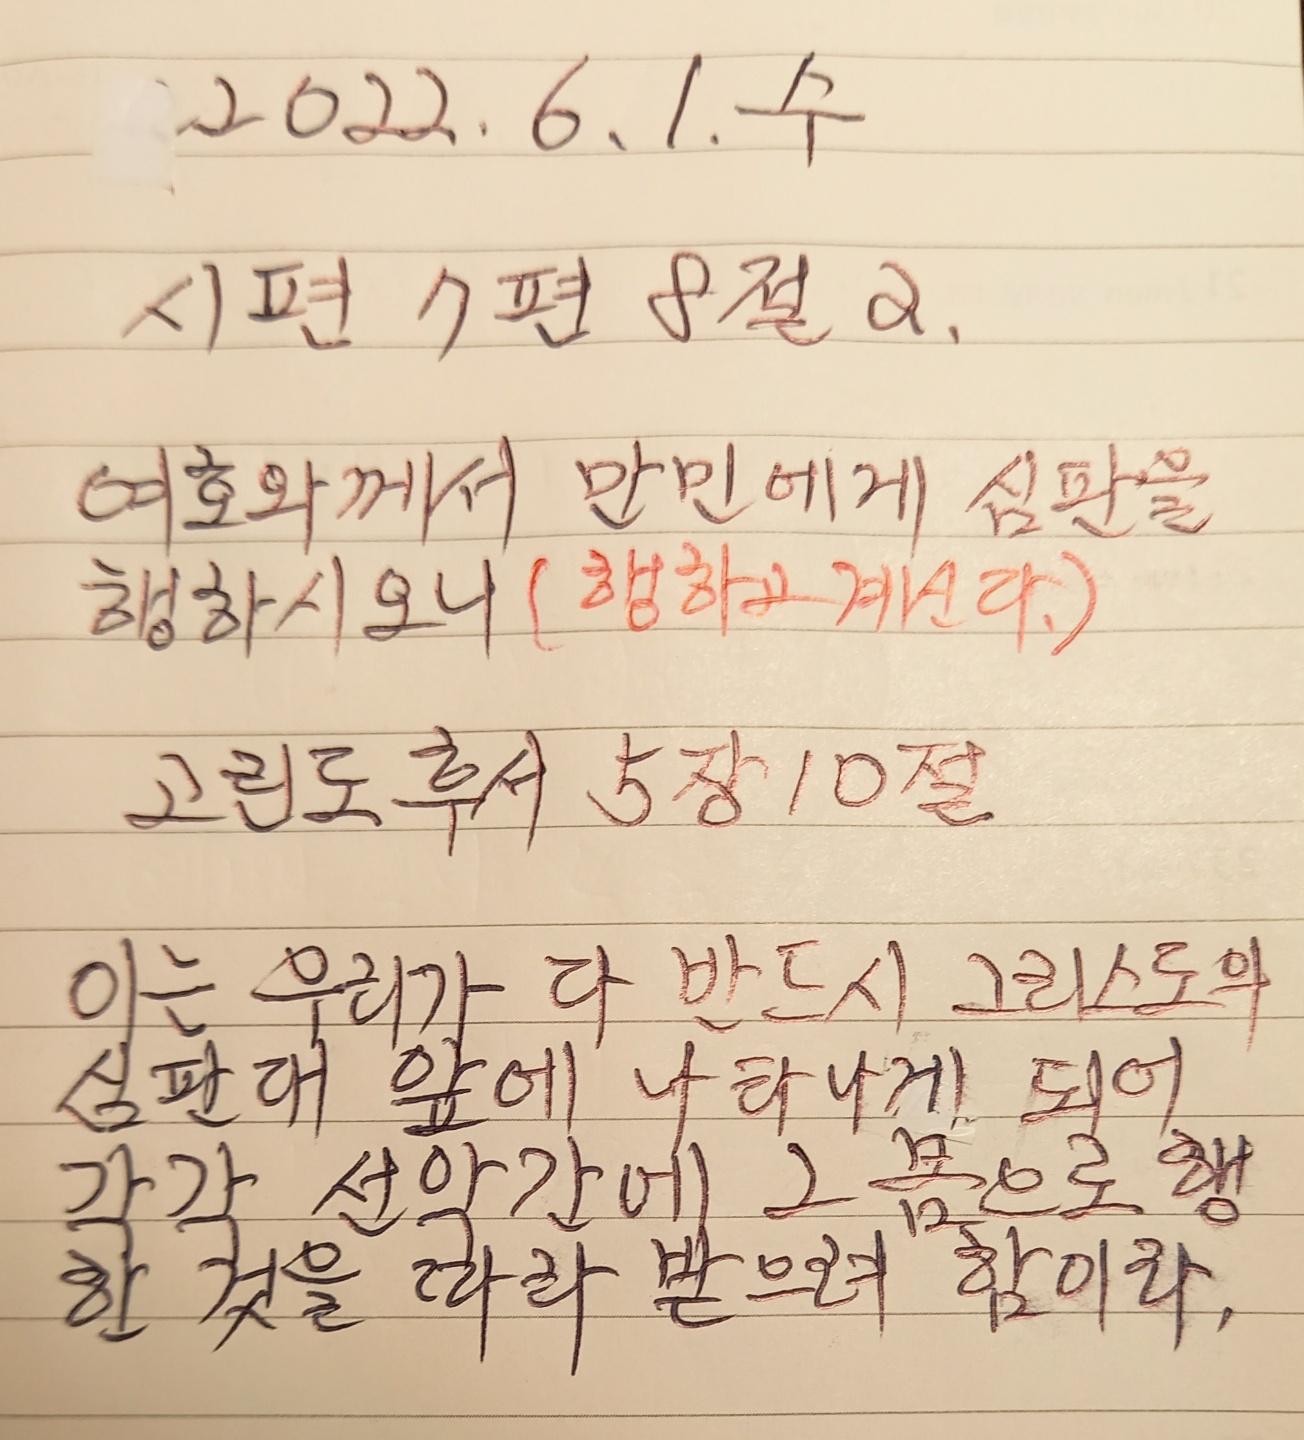 2022. 6. 1. 수
시편 7편 8절 2.
여호와께서 만민에게 심판을
행하시오니 (행하고 계신다.)
고린도후서 5장 10절
이는 우리가 다 반드시 그리스도의
심판대 앞에 나타나게 되어
각각 선악간에 그 몸으로 행
한 것을 따라 받으려 함이라.